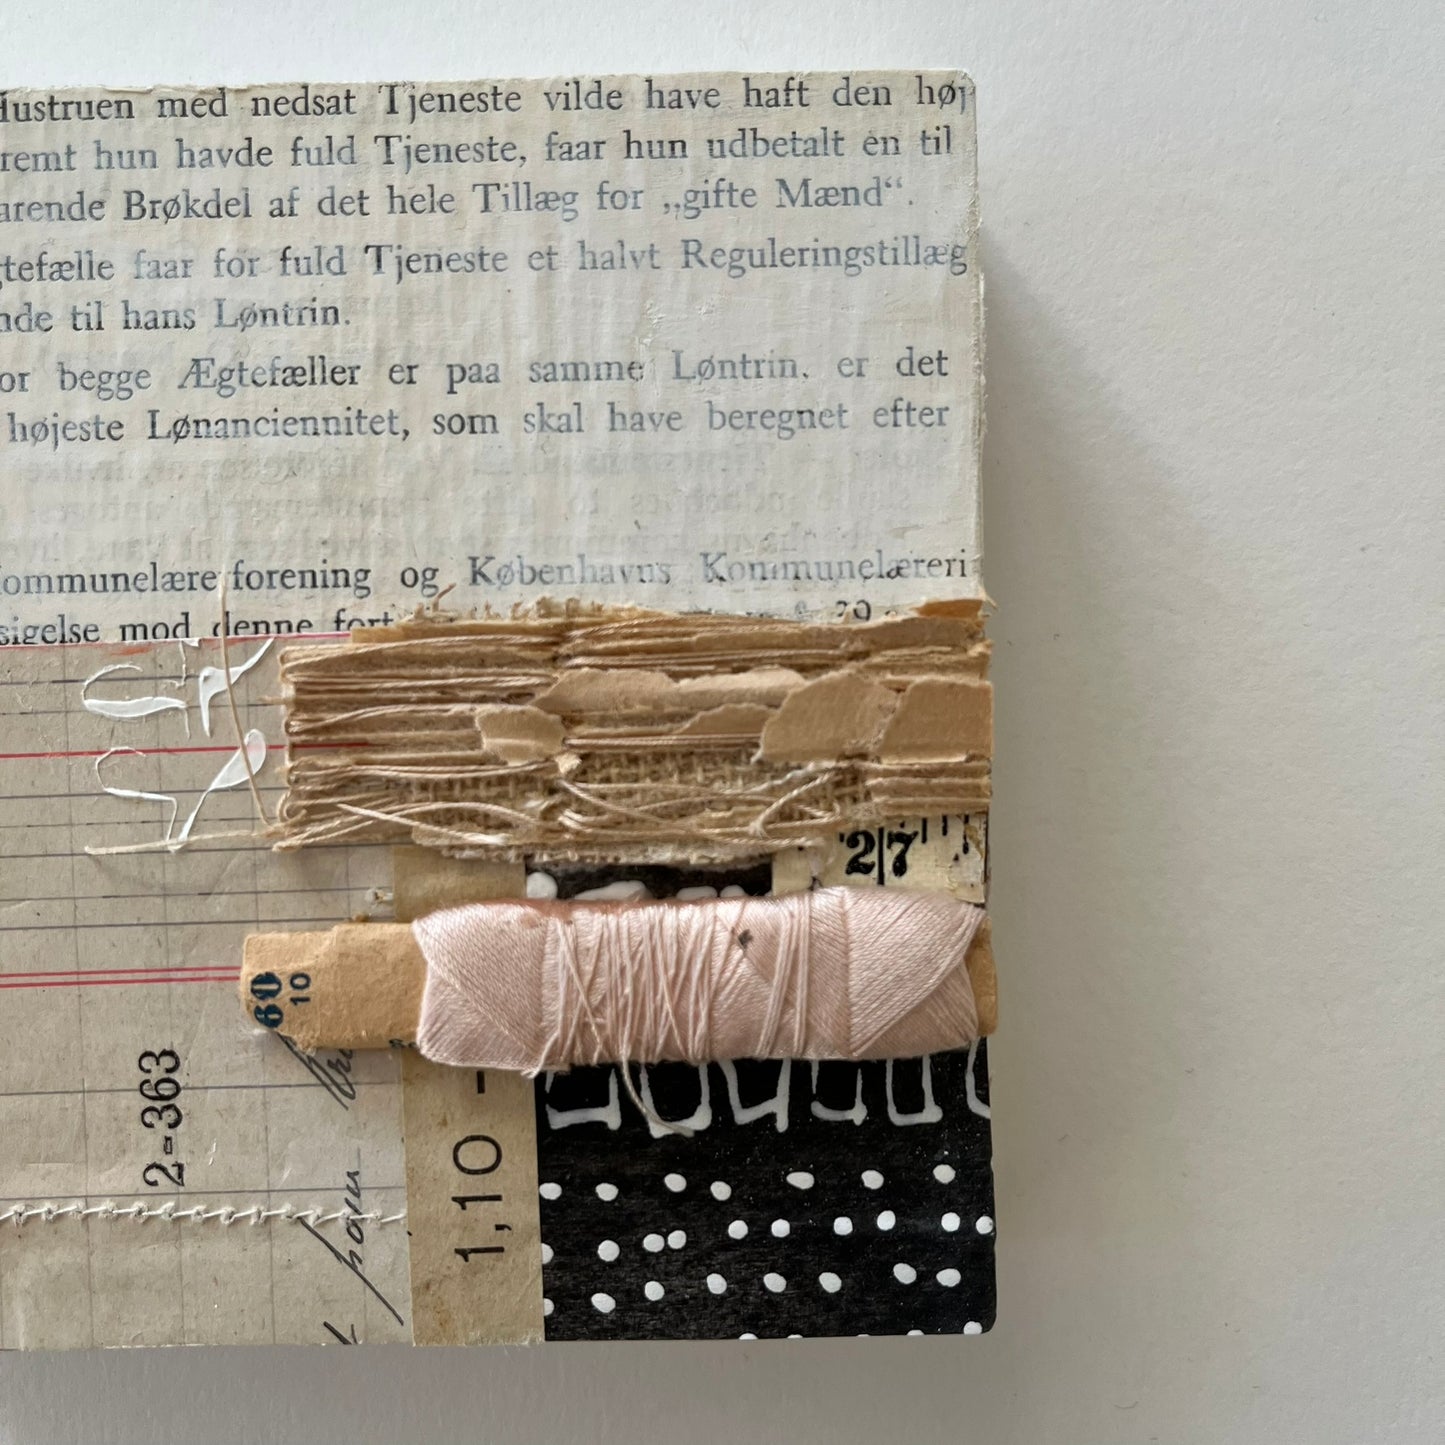 Hustruen med nedsat Tjeneste vilde have haft den høj
remt hun havde fuld Tjeneste, faar hun udbetalt en til
arende Brøkdel af det hele Tillæg for „gifte Mænd“.
gtefælle faar for fuld Tjeneste et halvt Reguleringstillæg
nde til hans Løntrin.
or begge Ægtefæller er paa samme Løntrin, er det
højeste Lønanciennitet, som skal have beregnet efter
ommunelærerforening og Københavns Kommunelæreri
sigelse mod denne fort
27
60
10
2-363
1,10 -